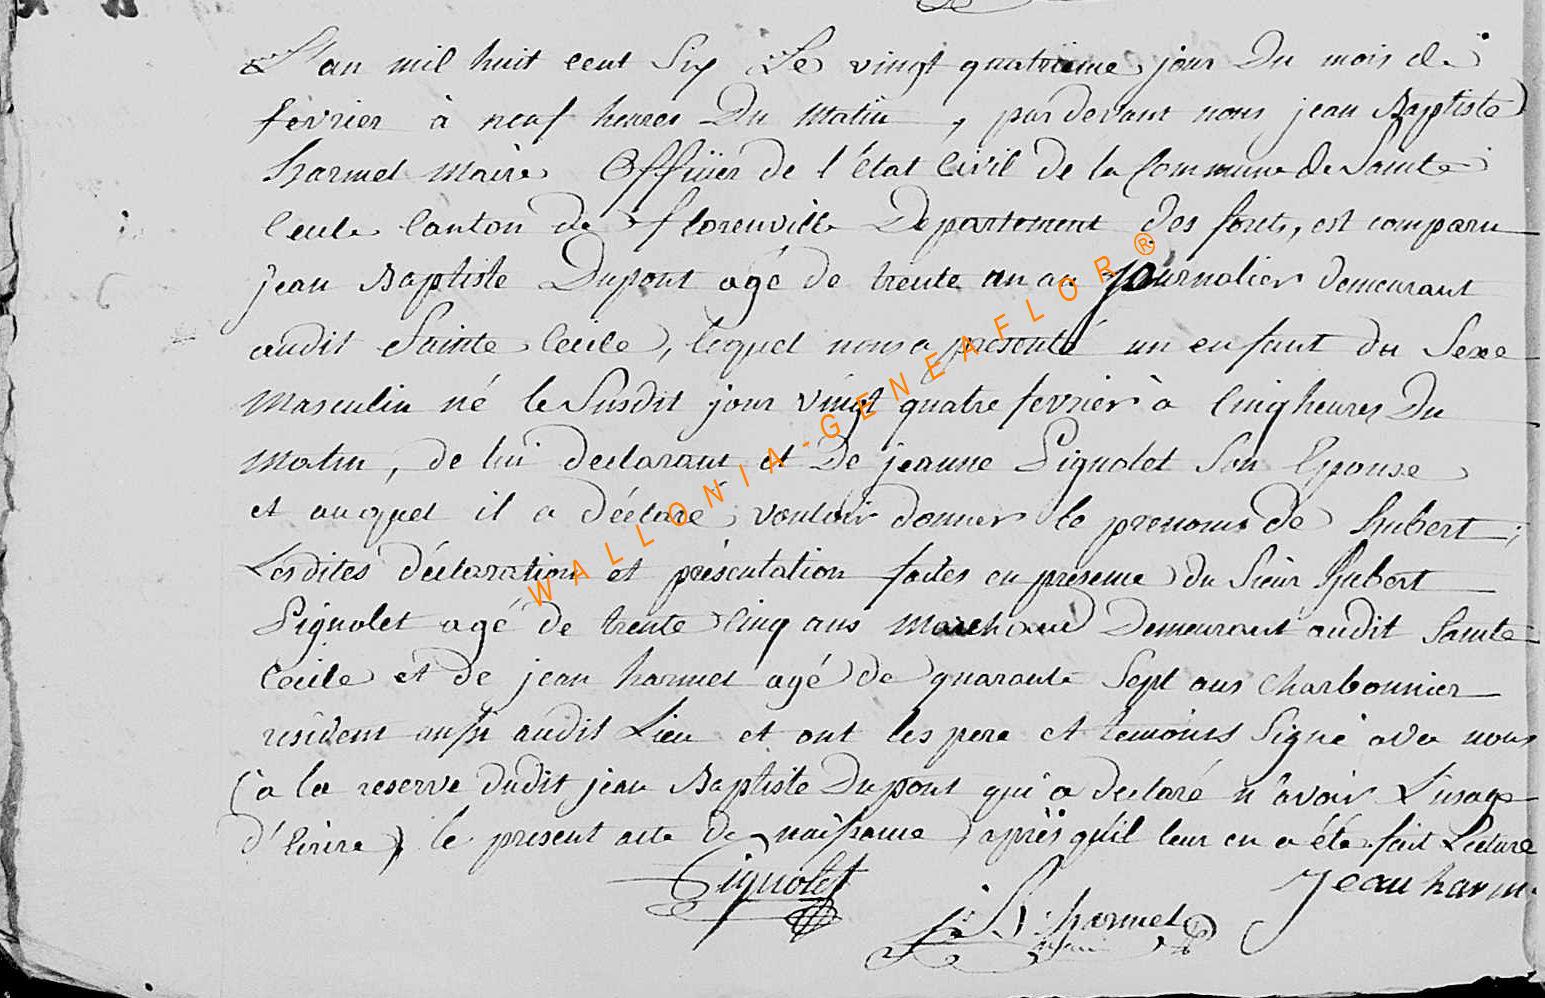 L'an mil huit cent Six Le vingt quatrieme jour Du mois de
fevrier à neuf heures Du Matin, par devant nous jean Baptiste
harmel Maire Officier de l'état Civil de la Commune de Sainte
Cecile Canton de florenville Departement des forets, est comparu
jean Baptiste Dupont agé de trente un an Journalier demeurant
audit Sainte Cecile, lequel nous a présenté un enfant du Sexe
Masculin né le Susdit jour vingt quatre fevrier à Cinq heures Du
Matin, de lui declarant et De jeanne Pignolet Son Epouse
et auquel il a déclaré vouloir donner le prenoms de hubert;
Lesdites déclaration et présentation faites en presence du Sieur hubert
Pignolet agé de trente Cinq ans Marchand Demeurant audit Sainte
Cecile et de jean harmel agé de quarante Sept ans Charbonnier
résident aussi audit Lieu et ont les pere et temoins Signé avec nous
(à la reserve dudit jean Baptiste Dupont qui a declaré n'avoir L'usage
d'Ecrire), le present acte de naissance, après qu'il leur en a été fait Lecture
Pignolet
Jean harm
J. B. harmel
maire
WALLONIA-GENEAFLOR®